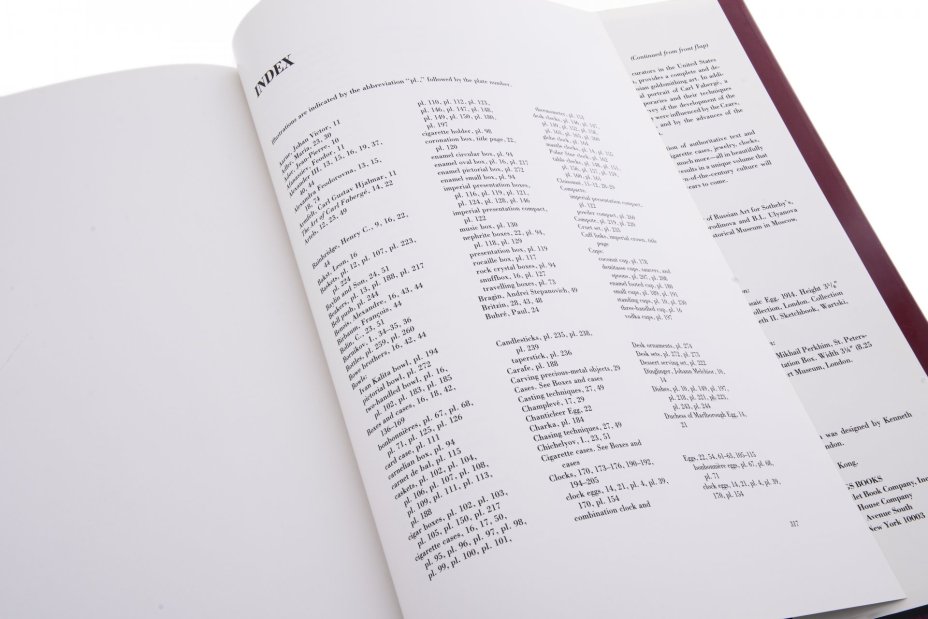 INDEX
Illustrations are indicated by the abbreviation "pl.," followed by the plate number.
Aarne, Johan Victor, 11
Adler, Jean Pierre, 10
Afanassiev, Feodor, 11
Alexander III, 13, 15, 16, 19, 37,
40, 44
Alexandra Feodorovna, 13, 15,
18, 74
Armfelt, Carl Gustav Hjalmar, 11
The Art of Carl Fabergé, 14, 22
Artels, 12, 23, 49
Bainbridge, Henry C., 9, 16, 22,
44
Bakst, Leon, 16
Baskets, pl. 12, pl. 107, pl. 223,
pl. 224
Bolin and Son, 24, 51
Beakers, pl. 13, pl. 188, pl. 217
Bell push, pl. 244
Benois, Alexandre, 16, 43, 44
Birbaum, François, 44
Bolin, C., 23, 51
Bottles, pl. 259, pl. 260
Bowe brothers, 16, 42, 44
Bowls:
Ivan Kalita bowl, pl. 194
pictorial bowl, pl. 272
two-handled bowl, pl. 16,
pl. 102, pl. 183, pl. 185
Boxes and cases, 16, 18, 42,
136–169
bonbonnières, pl. 67, pl. 68,
pl. 71, pl. 125, pl. 126
card case, pl. 111
carnelian box, pl. 94
carnet de bal, pl. 115
caskets, pl. 102, pl. 104,
pl. 106, pl. 107, pl. 108,
pl. 109, pl. 111, pl. 113,
pl. 188
cigar boxes, pl. 102, pl. 103,
pl. 105, pl. 150, pl. 217
cigarette cases, 16, 17, 50,
pl. 95, pl. 96, pl. 97, pl. 98,
pl. 99, pl. 100, pl. 101,
pl. 110, pl. 112, pl. 121,
pl. 146, pl. 147, pl. 148,
pl. 149, pl. 150, pl. 180,
pl. 197
cigarette holder, pl. 98
coronation box, title page, 12,
pl. 120
enamel circular box, pl. 94
enamel oval box, pl. 16, pl. 217
enamel pictorial box, pl. 272
enamel small box, pl. 94
imperial presentation boxes,
pl. 116, pl. 119, pl. 121,
pl. 124, pl. 128, pl. 146
imperial presentation compact,
pl. 122
music box, pl. 130
nephrite boxes, 22, pl. 94,
pl. 118, pl. 129
presentation box, pl. 119
rocaille box, pl. 117
rock crystal boxes, pl. 94
snuffbox, 16, pl. 127
travelling boxes, pl. 73
Bragin, Andrei Stepanovich, 49
Britzin, 28, 43, 48
Buhré, Paul, 24
Candlesticks, pl. 235, pl. 238,
pl. 239
taperstick, pl. 236
Carafe, pl. 188
Carving precious-metal objects, 29
Cases. See Boxes and cases
Casting techniques, 27, 49
Champlevé, 17, 29
Chanticleer Egg, 22
Charka, pl. 184
Chasing techniques, 27, 49
Chichelyov, I., 23, 51
Cigarette cases. See Boxes and
cases
Clocks, 170, 173–176, 190–192,
194–205
clock eggs, 14, 21, pl. 4, pl. 39,
170, pl. 154
combination clock and
thermometer, pl. 151
Polar Star clock, pl. 162
Cloisonné, 11–12, 28–29
Compacts:
imperial presentation compact,
pl. 122
powder compact, pl. 250
Compote, pl. 219, pl. 220
Cruet set, pl. 233
Cuff links, imperial crown, title
page
Cups:
coconut cup, pl. 178
demitasse cups, saucers, and
spoons, pl. 207, pl. 208
enamel footed cup, pl. 180
small cups, pl. 189, pl. 191
standing cups, pl. 10, pl. 236
three-handled cup, pl. 16
vodka cups, pl. 197
Desk ornaments, pl. 274
Desk sets, pl. 272, pl. 273
Dessert serving set, pl. 222
Dinglinger, Johann Melchior, 10,
14
Dishes, pl. 16, pl. 149, pl. 197,
pl. 218, pl. 221, pl. 223,
pl. 243, pl. 244
Duchess of Marlborough Egg, 14,
21
Eggs, 22, 54, 61–63, 105–115
bonbonnière eggs, pl. 67, pl. 68,
pl. 71
clock eggs, 14, 21, pl. 4, pl. 39,
170, pl. 154
317
(Continued from front flap)
curators in the United States
, provides a complete and de-
sian goldsmithing art. In addi-
l portrait of Carl Fabergé, a
poraries and their techniques
vey of the development of the
were influenced by the Czars,
and by the advances of the
tion of authoritative text and
igarette cases, jewelry, clocks,
much more—all in beautifully
results in a unique volume that
n-of-the-century culture will
ears to come.
of Russian Art for Sotheby's,
orodimova and B.L. Ulyanova
istorical Museum in Moscow.
on:
saic Egg. 1914. Height 3¼"
ollection, London. Collection
eth II. Sketchbook, Wartski,
Mikhail Perkhin, St. Peters-
tation Box. Width 3¼" (8.25
rt Museum, London.
n was designed by Kenneth
ondon.
Kong.
SS BOOKS
let Book Company, Inc
House Company
Avenue South
New York 10003